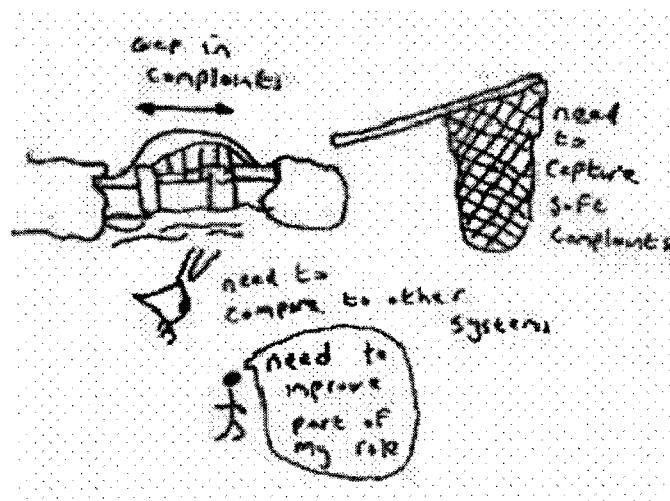 Gap in
complaints
need
to
capture
soft
complaints
need to
compare to other
systems
need to
improve
part of
my role